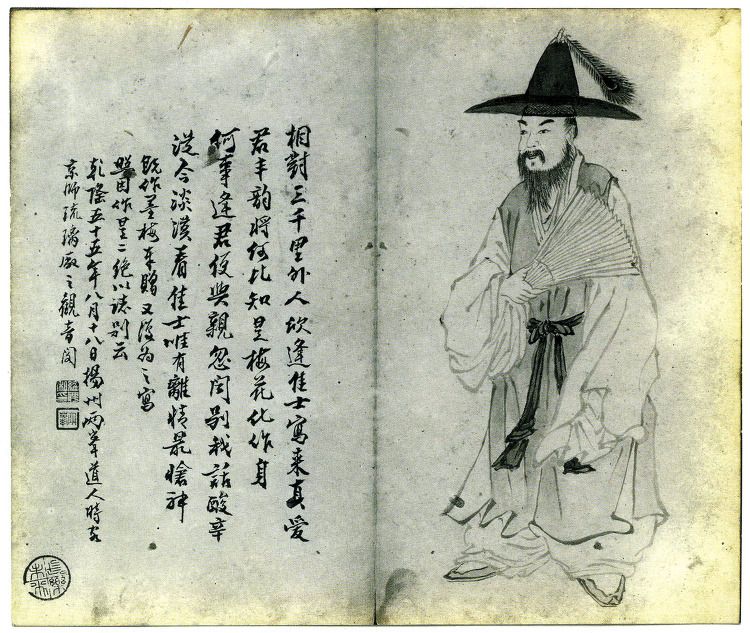 相對三千里外人欣逢佳士寫来真愛
君丰韵將何比知是梅花化作身
何事逢君便與親忽聞別我話酸辛
從今淡漠看佳士唯有離情最愴神
既作墨梅奉贈又復為之寫
照因作是二絕以誌別云
乾隆五十五年八月十八日揚州兩峯道人時客
京師琉璃廠之觀音閣